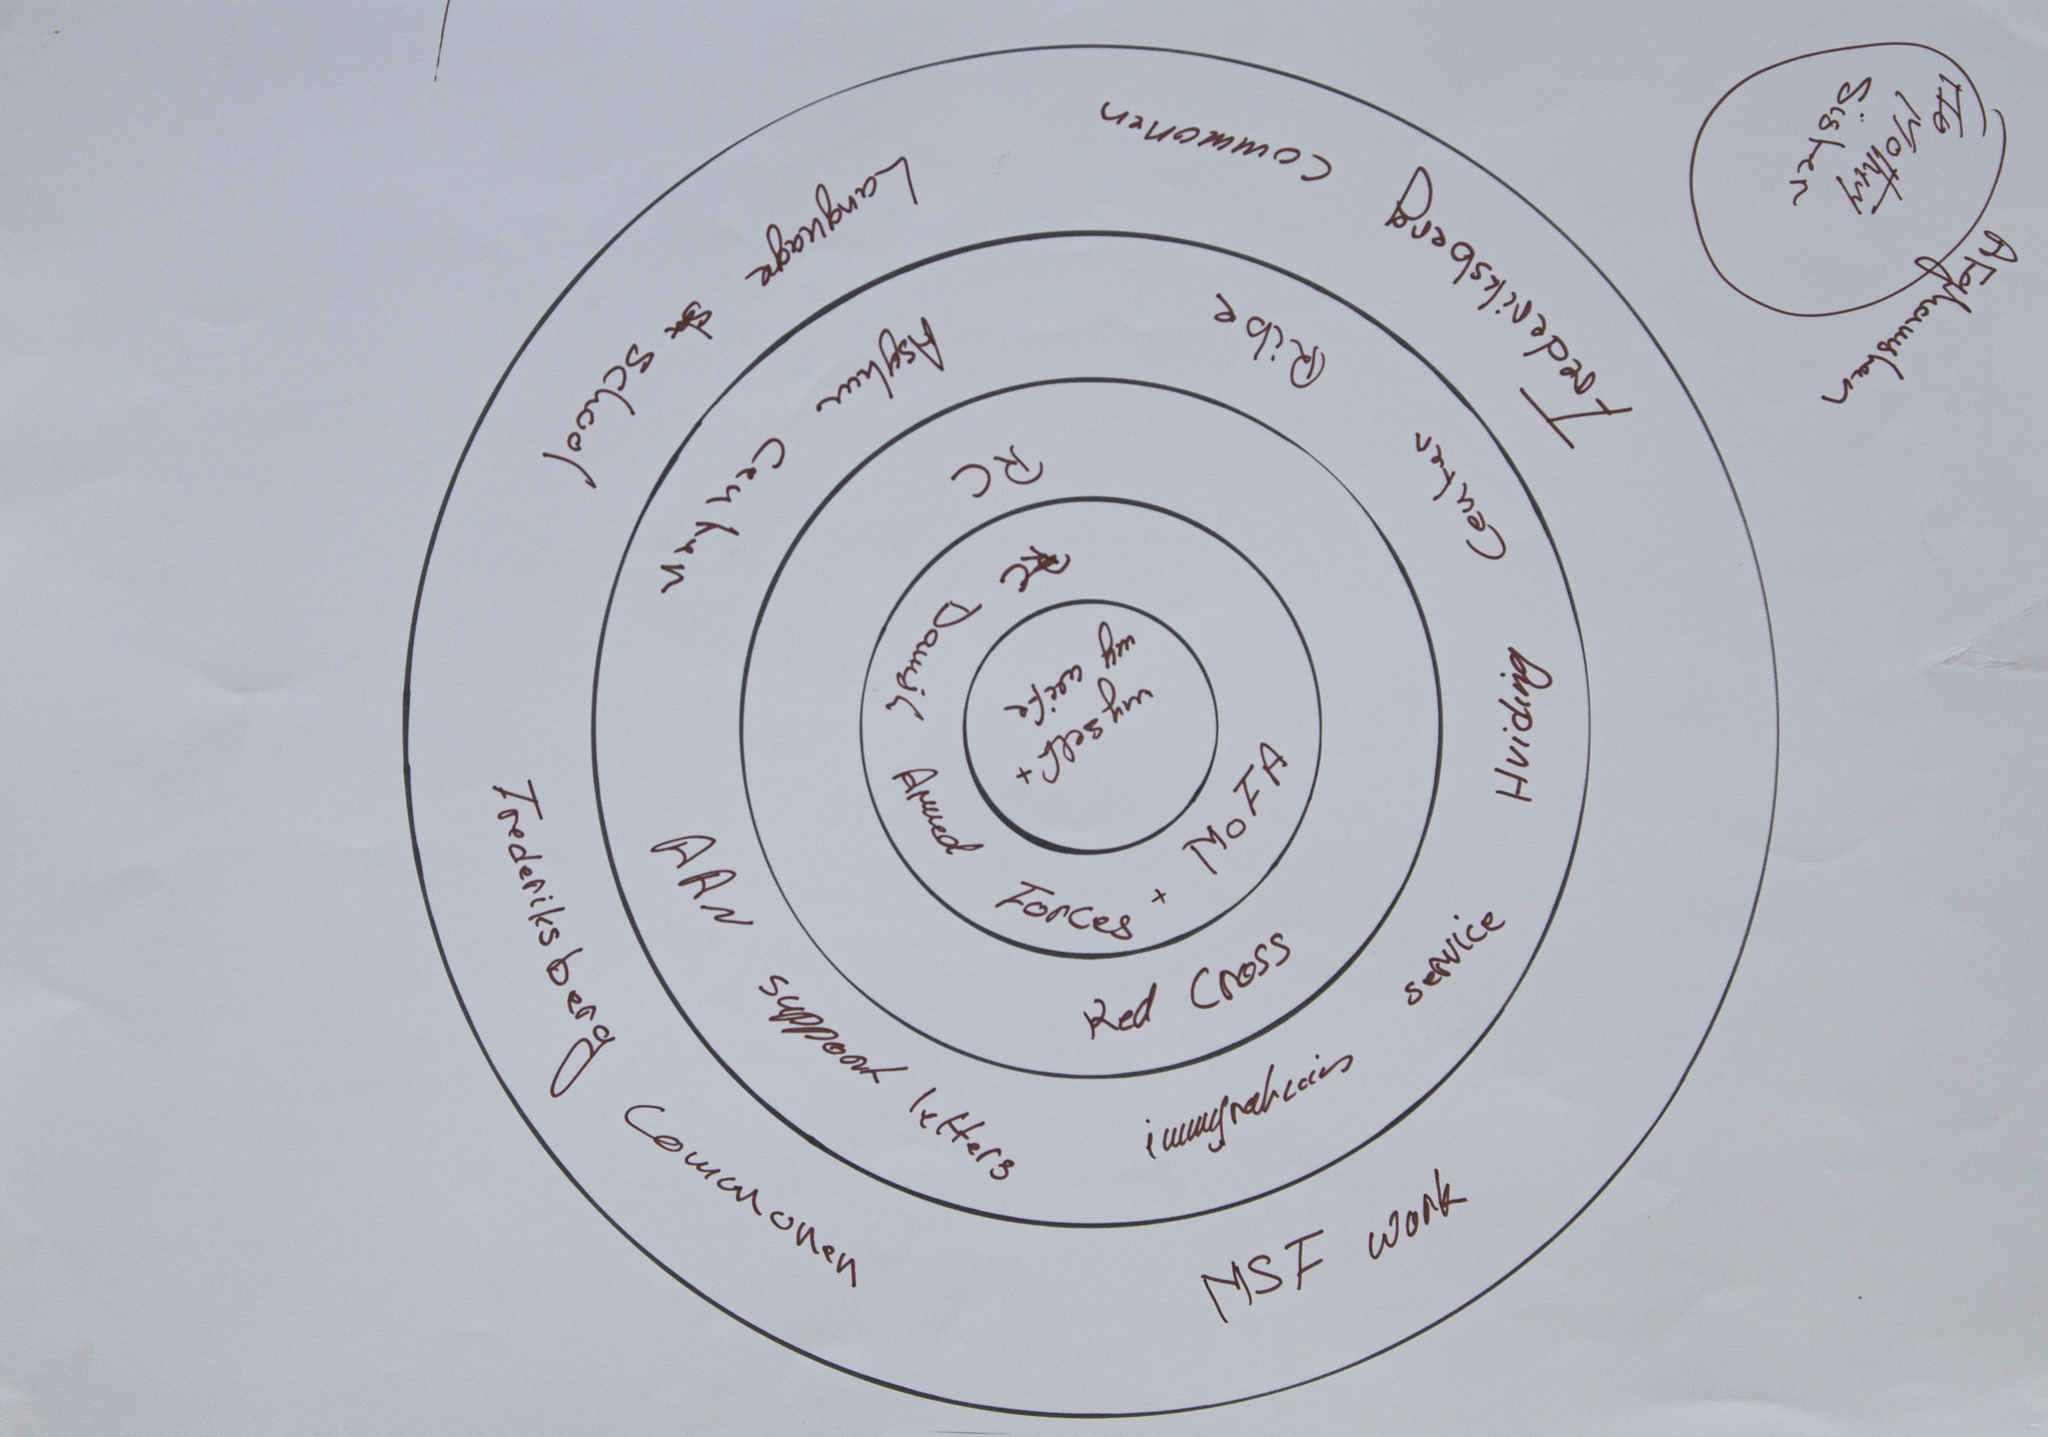 myself +
my wife
RC Danish Armed Forces + MoFA
RC
Red Cross
Asylum Center
Ribe Center
Hviding
AAN support letters
immigrations service
Language School
Frederiksberg Commonen
Frederiksberg Commonen
MSF work
Sister
Afghanistan